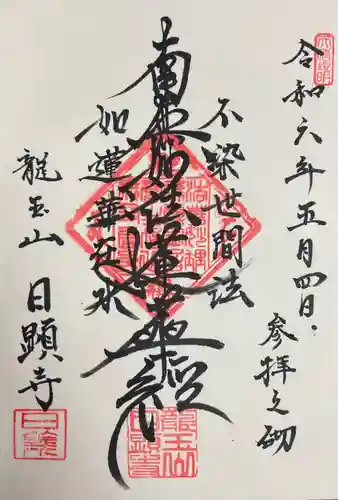 令和六年五月四日
参拝之砌
不染世間法
南無妙法蓮華経
如蓮華在水
龍玉山 日顕寺